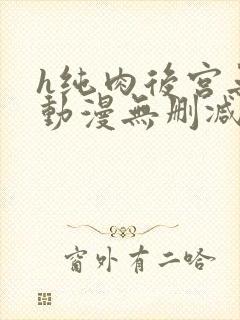 h纯肉後宮
動漫無删减
窗外有二哈